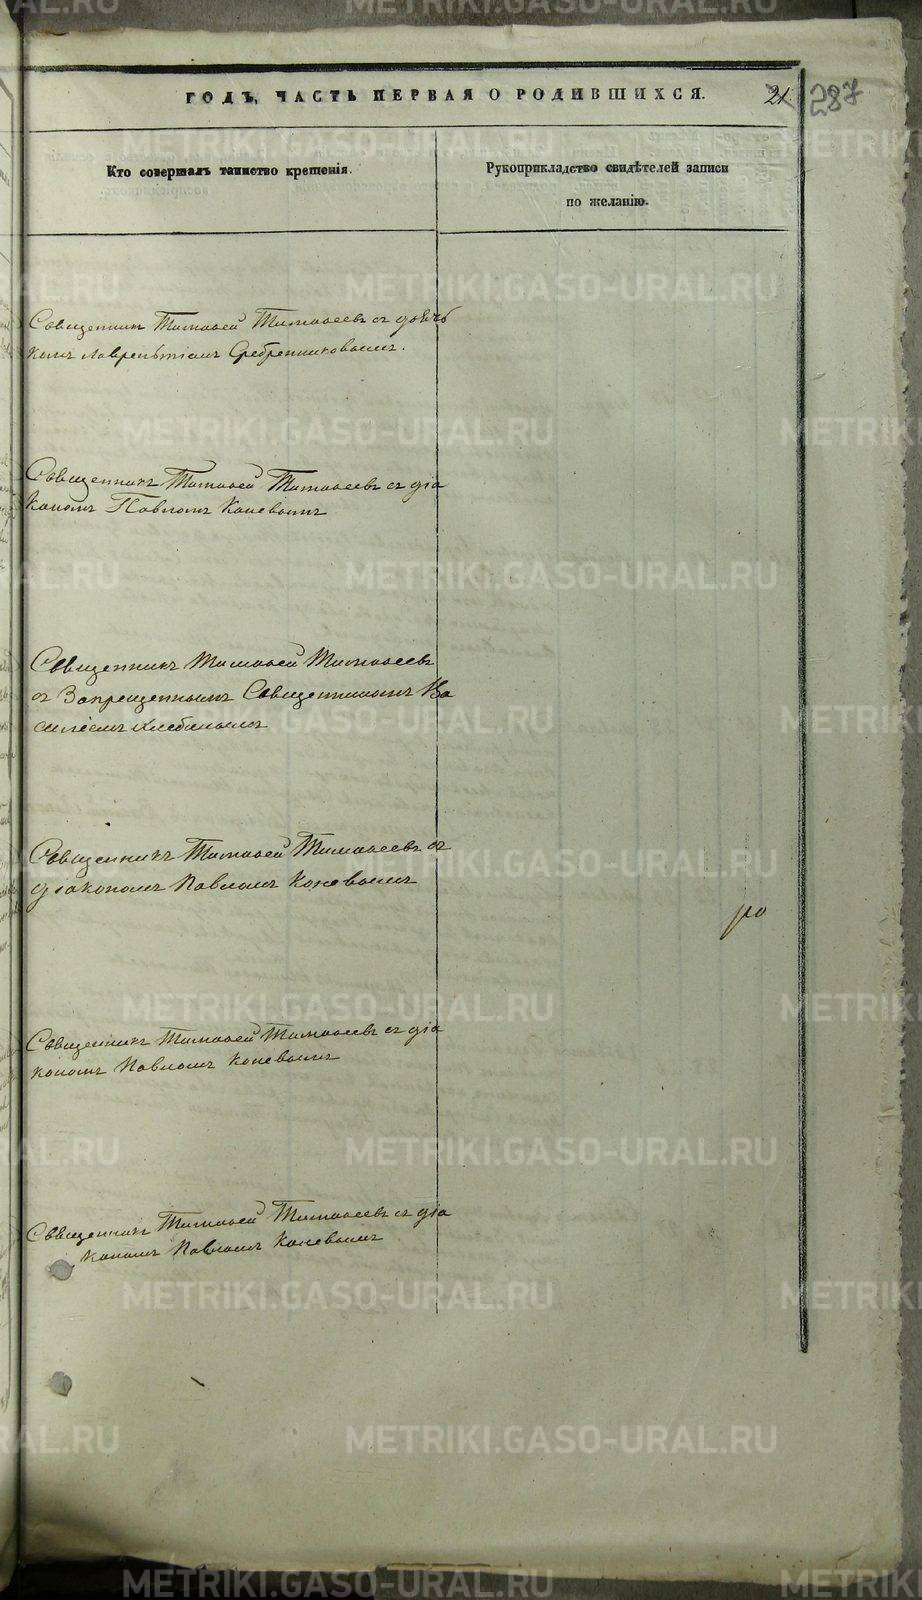 ГОДЪ, ЧАСТЬ ПЕРВАЯ О РОДИВШИХСЯ. 21. 287
Кто совершалъ таинство крещенія.
Рукоприкладство свидѣтелей записи
по желанію.
Священникъ Тимофей Тимофеевъ съ дьяч
комъ Лаврентіемъ Сребренниковымъ.
Священникъ Тимофей Тимофеевъ съ діа
кономъ Павломъ Коневымъ
Священникъ Тимофей Тимофеевъ
съ Запрещеннымъ Священникомъ Ва
силіемъ
Священникъ Тимофей Тимофеевъ съ
діакономъ Павломъ Коневымъ
Священникъ Тимофей Тимофеевъ съ діа
кономъ Павломъ Коневымъ
Священникъ Тимофей Тимофеевъ съ діа
кономъ Павломъ Коневымъ
METRIKI.GASO-URAL.RU